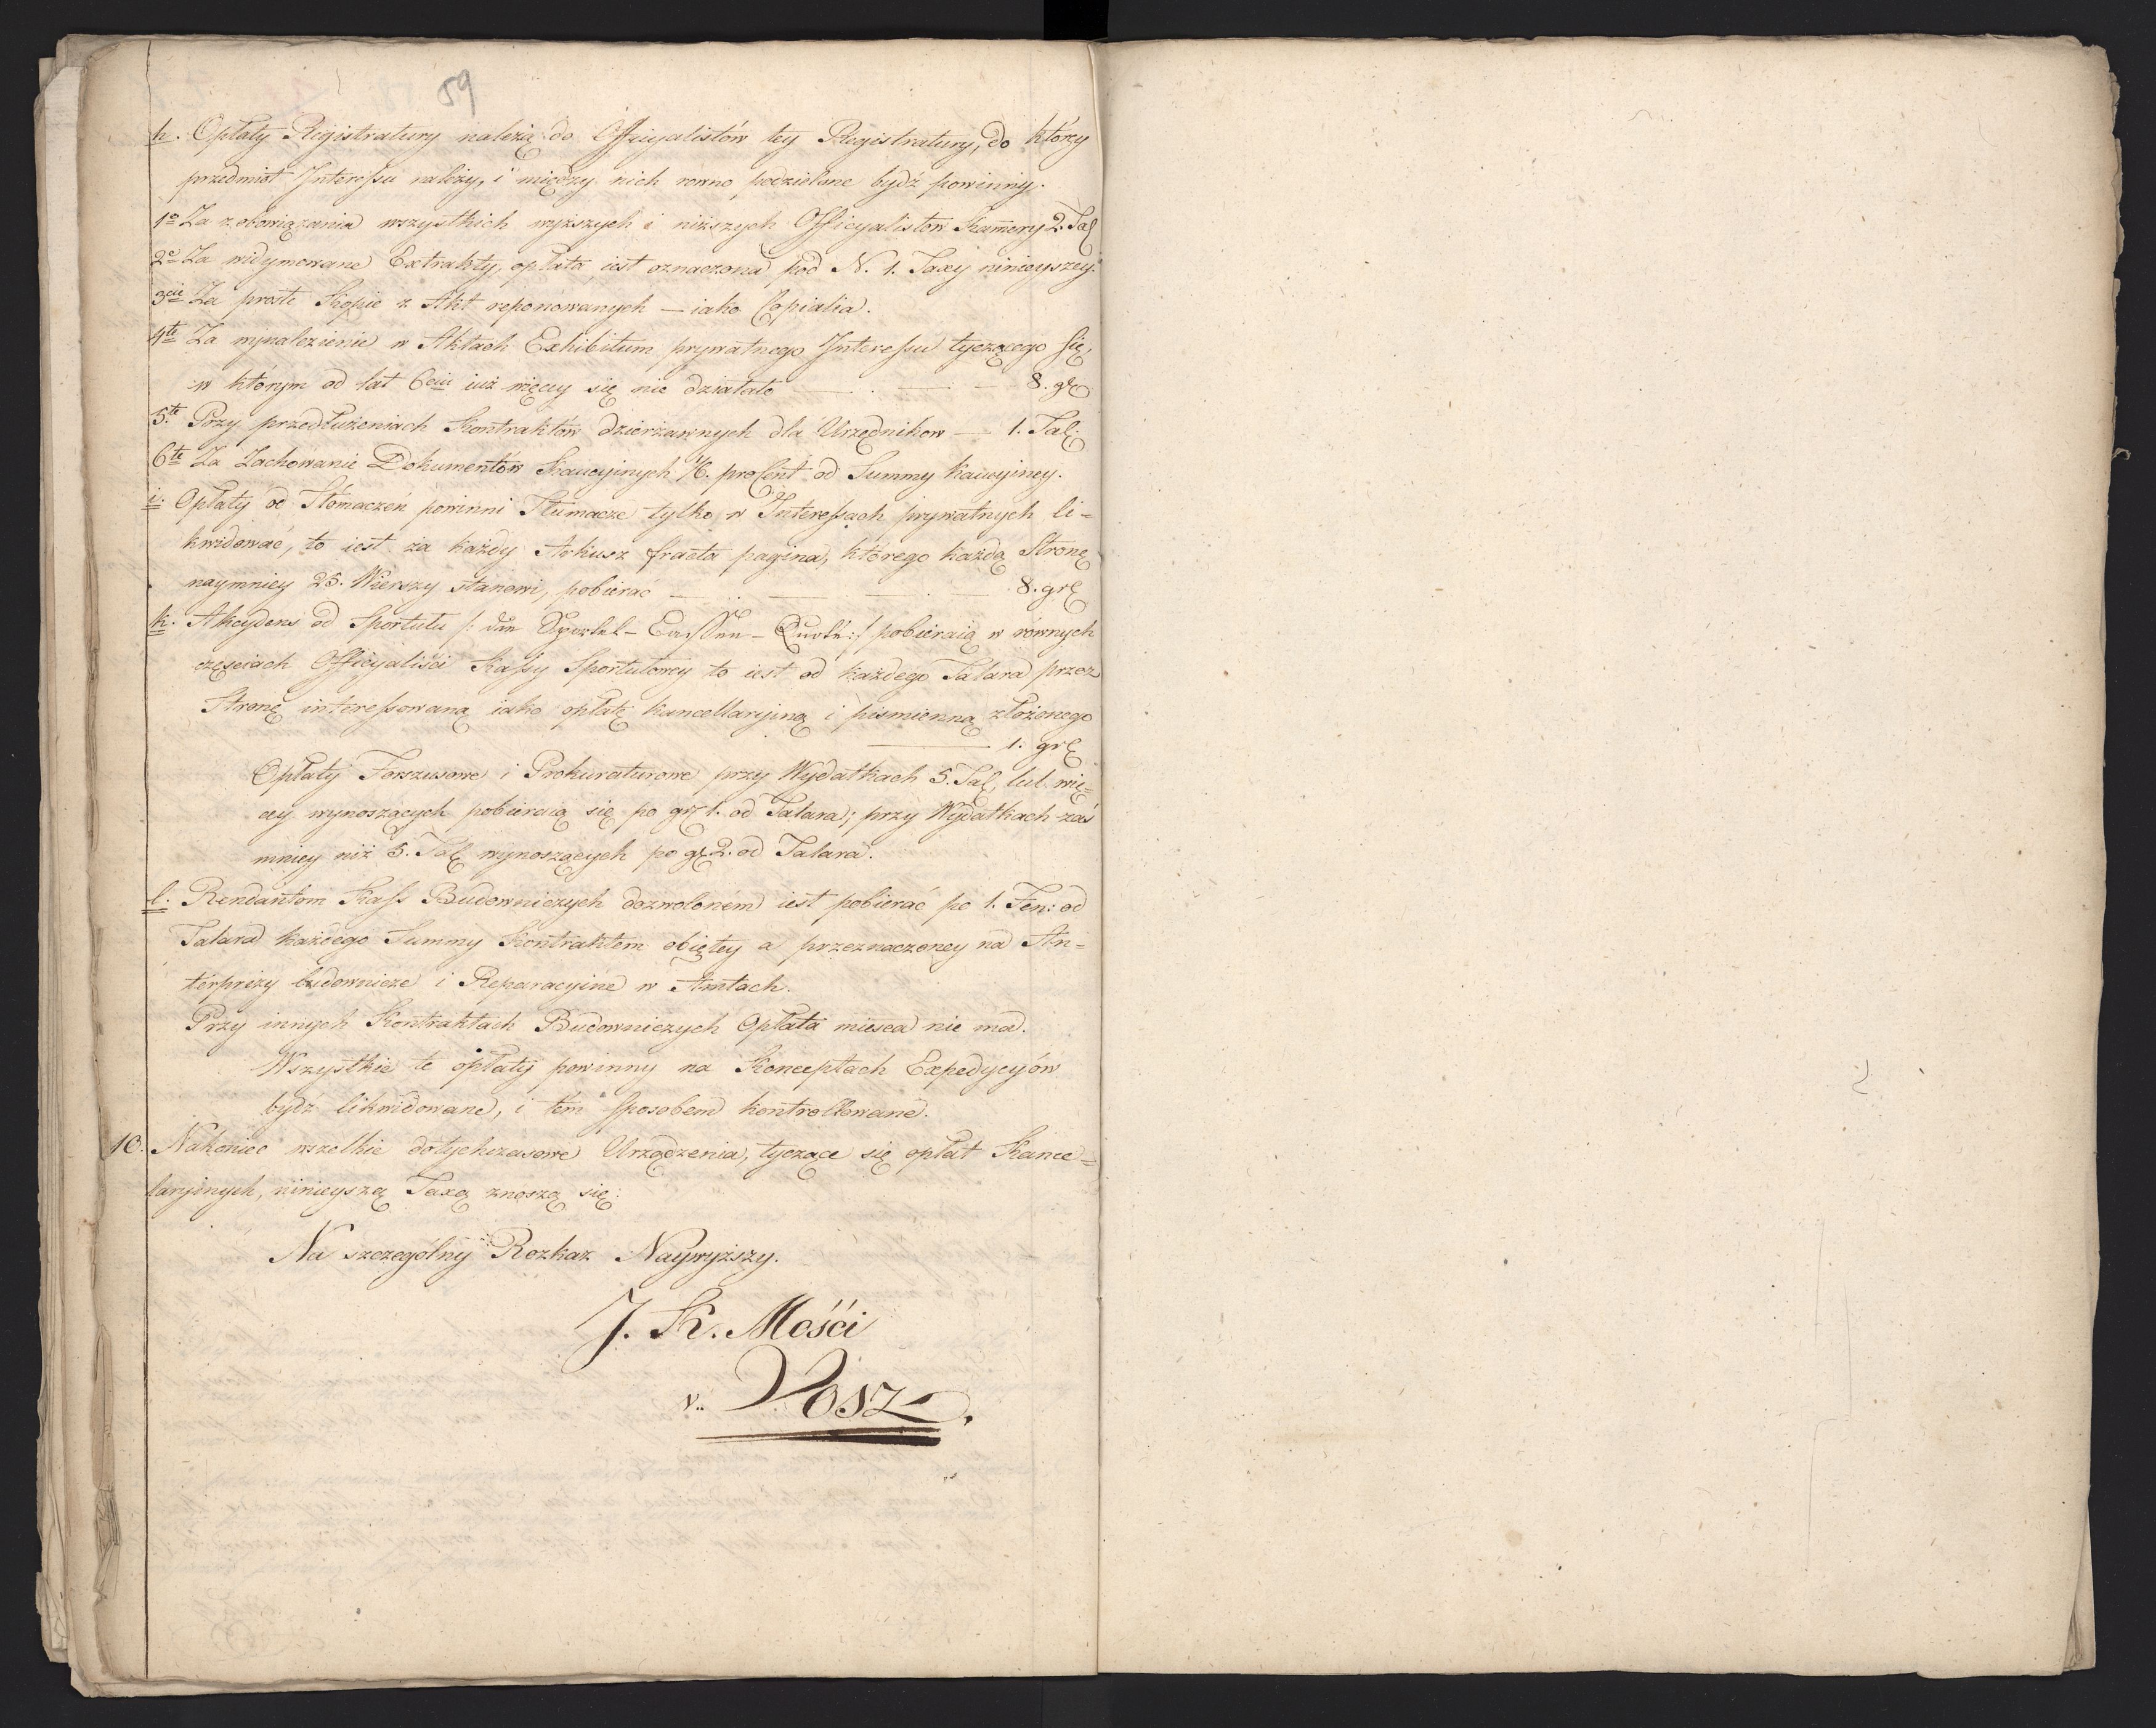 59
h. Opłaty Registratury należą do Officyalistów tey Registratury, do którey
przedmiot Interessu należy, i między nich rowno podzielone bydź powinny.
1º Za zobowiązania wszystkich wyższych i niższych Officyalistow Kamery 2. Tal
2º Za widymowane Extrakty, opłata iest oznaczona pod N. 1. Taxy ninieyszey.
3cie Za proste Kopie z Akt reponowanych — iako Copialia.
4te Za wynalezienie w Aktach Exhibitum prywatnego Interessu tyczącego się,
w którym od lat 6ciu iuż więcey się nie działało — . — — 8. gr
5.te Przy przedłużeniach Kontraktów dzierżawnych dla Urzędnikow — 1. Tal.
6te Za Zachowanie Dokumentów Kaucyinych 1/6. proCent od Summy kaucyiney.
i. Opłaty od Tłómaczeń powinni Tłumacze tylko w Interessach prywatnych li-
kwidowac, to iest za każdy Arkusz fracta pagina, którego każdą Stronę
naymniey 25. Wierszy stanowi, pobierać — .. — — . — 8. gr
k. Akcydens od Sportulu /: die Sportel-Cassen-Quote :/ pobieraią w równych
częsciach Officyaliści Kassy Sportulowey to iest od każdego Talara przez
Stronę interessowaną iako opłatę kancellaryiną i pismienną złożonego
— 1. gr
Opłaty Forszusowe i Prokuraturowe przy Wydatkach 5. Tal, lub wię-
cey wynoszących pobieraią się po gr 1. od Talara; przy Wydatkach zaś
mniey niż 5. Tal wynoszących po gr 2. od Talara.
l. Rendantom Kass Budowniczych dozwoloném iest pobierać po 1. Fen: od
Talara każdego Summy Kontraktem obiętey a przeznaczoney na An-
terprizy budownicze i Reparacyine w Amtach.
Przy innych Kontraktach Budowniczych Opłata miesca nie ma.
Wszystkie te opłaty powinny na Konceptach Expedycyów
bydź likwidowane, i tém sposobem kontrollowane.
10. Nakoniec wszelkie dotychczasowe Urządzenia, tyczące się opłat Kance-
laryinych, ninieyszą Taxą znoszą się:
Na szczególny Rozkaz Naywyższy.
J. K. Mości
v. Vosz.